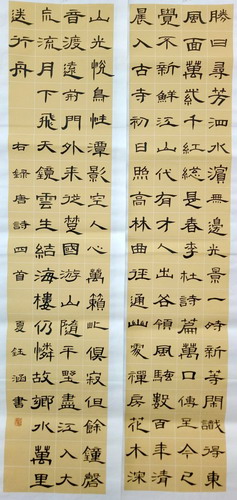 勝日尋芳泗水濱無邊光景一時新等閒識得東
風面萬紫千紅總是春李杜詩篇萬口傳至今已
覺不新鮮江山代有才人出各領風騷數百年清
晨入古寺初日照高林曲徑通幽處禪房花木深
山光悅鳥性潭影空人心萬籟此俱寂但餘鐘磬
音渡遠荊門外來從楚國游山隨平野盡江入大
荒流月下飛天鏡雲生結海樓仍憐故鄉水萬里
送行舟
右錄唐詩四首 夏鈺涵書